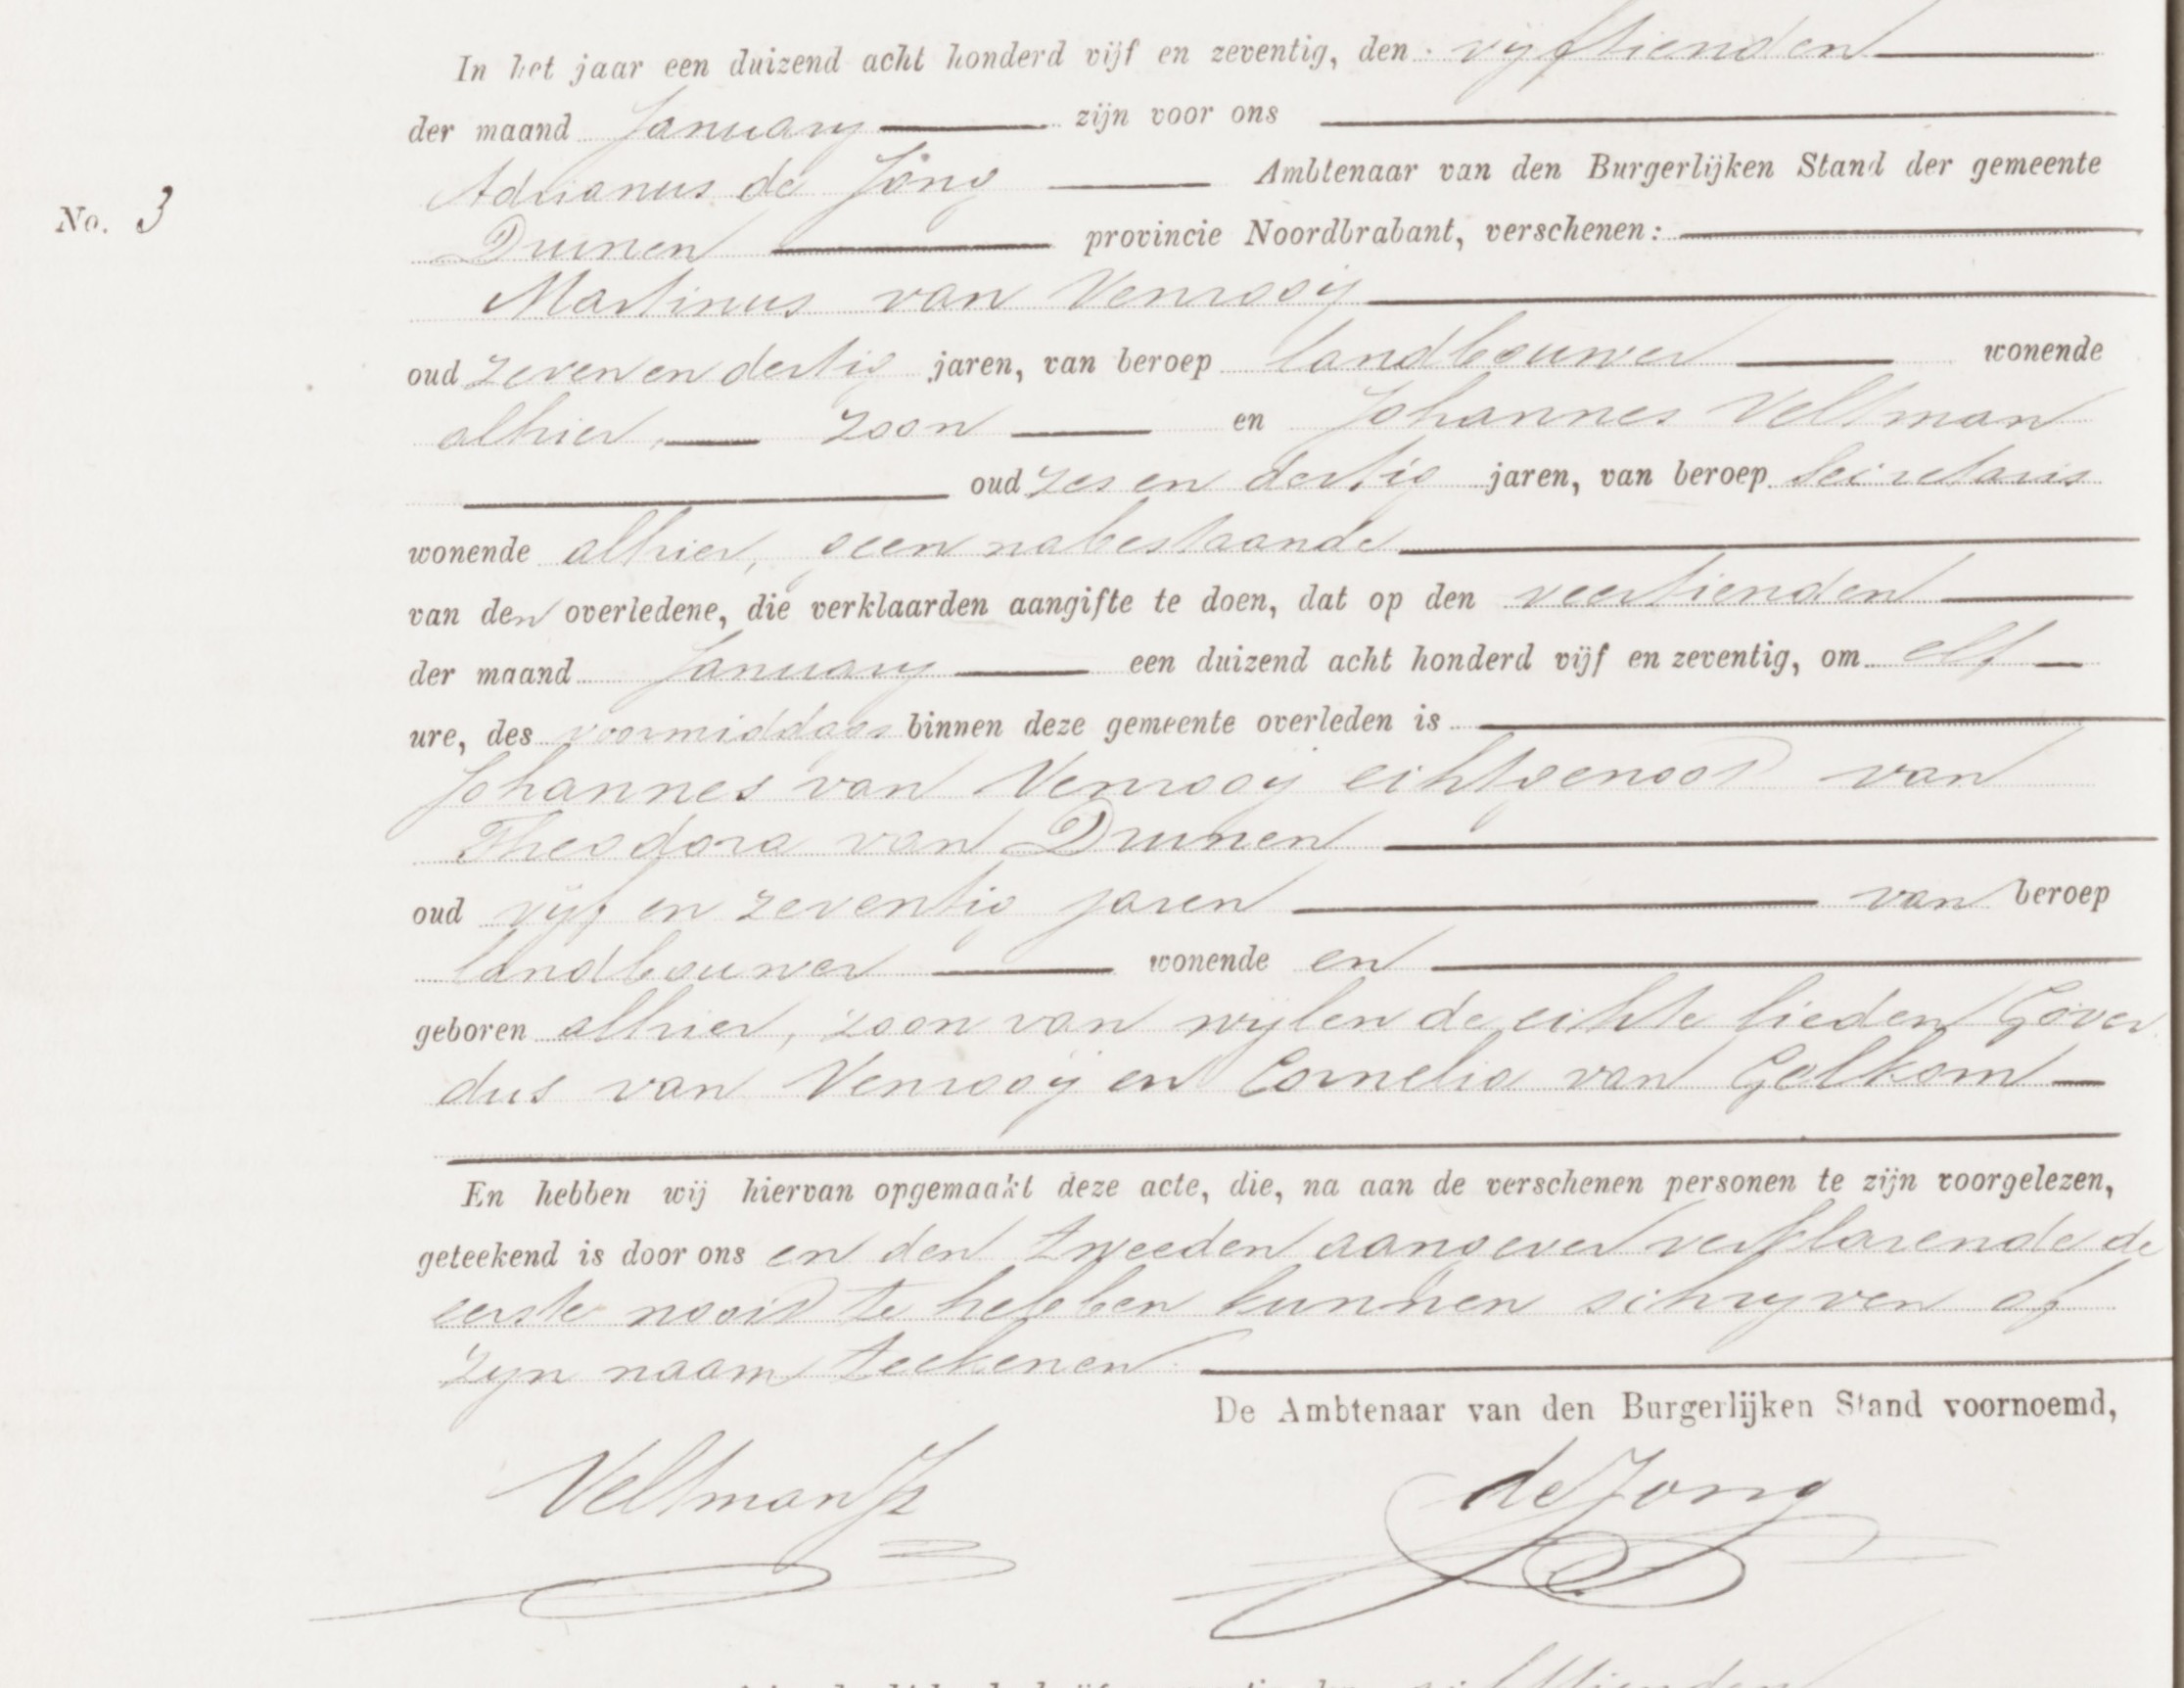 In het jaar een duizend acht honderd vijf en zeventig, den vyftienden
der maand January zijn voor ons
Adrianus de Jong Ambtenaar van den Burgerlijken Stand der gemeente
No. 3
Drunen provincie Noordbrabant, verschenen:
Martinus van Venrooij
oud zeven en dertig jaren, van beroep landbouwer wonende
alhier, zoon en Johannes Veltman
oud zes en dertig jaren, van beroep Secretaris
wonende alhier, geen nabestaande
van den overledene, die verklaarden aangifte te doen, dat op den veertienden
der maand January een duizend acht honderd vijf en zeventig, om elf
ure, des voormiddags binnen deze gemeente overleden is
Johannes van Venrooij echtgenoot van
Theodora van Drunen
oud vijf en zeventig jaren van beroep
landbouwer wonende en
geboren alhier, zoon van wylen de echte lieden Gover
dus van Venrooij en Cornelia van Golkom
En hebben wij hiervan opgemaakt deze acte, die, na aan de verschenen personen te zijn voorgelezen,
geteekend is door ons en den tweeden aangever verklarende de
eerste nooit te hebben kunnen schryven of
zyn naam teekenen
De Ambtenaar van den Burgerlijken Stand voornoemd,
Veltman Jz de Jong